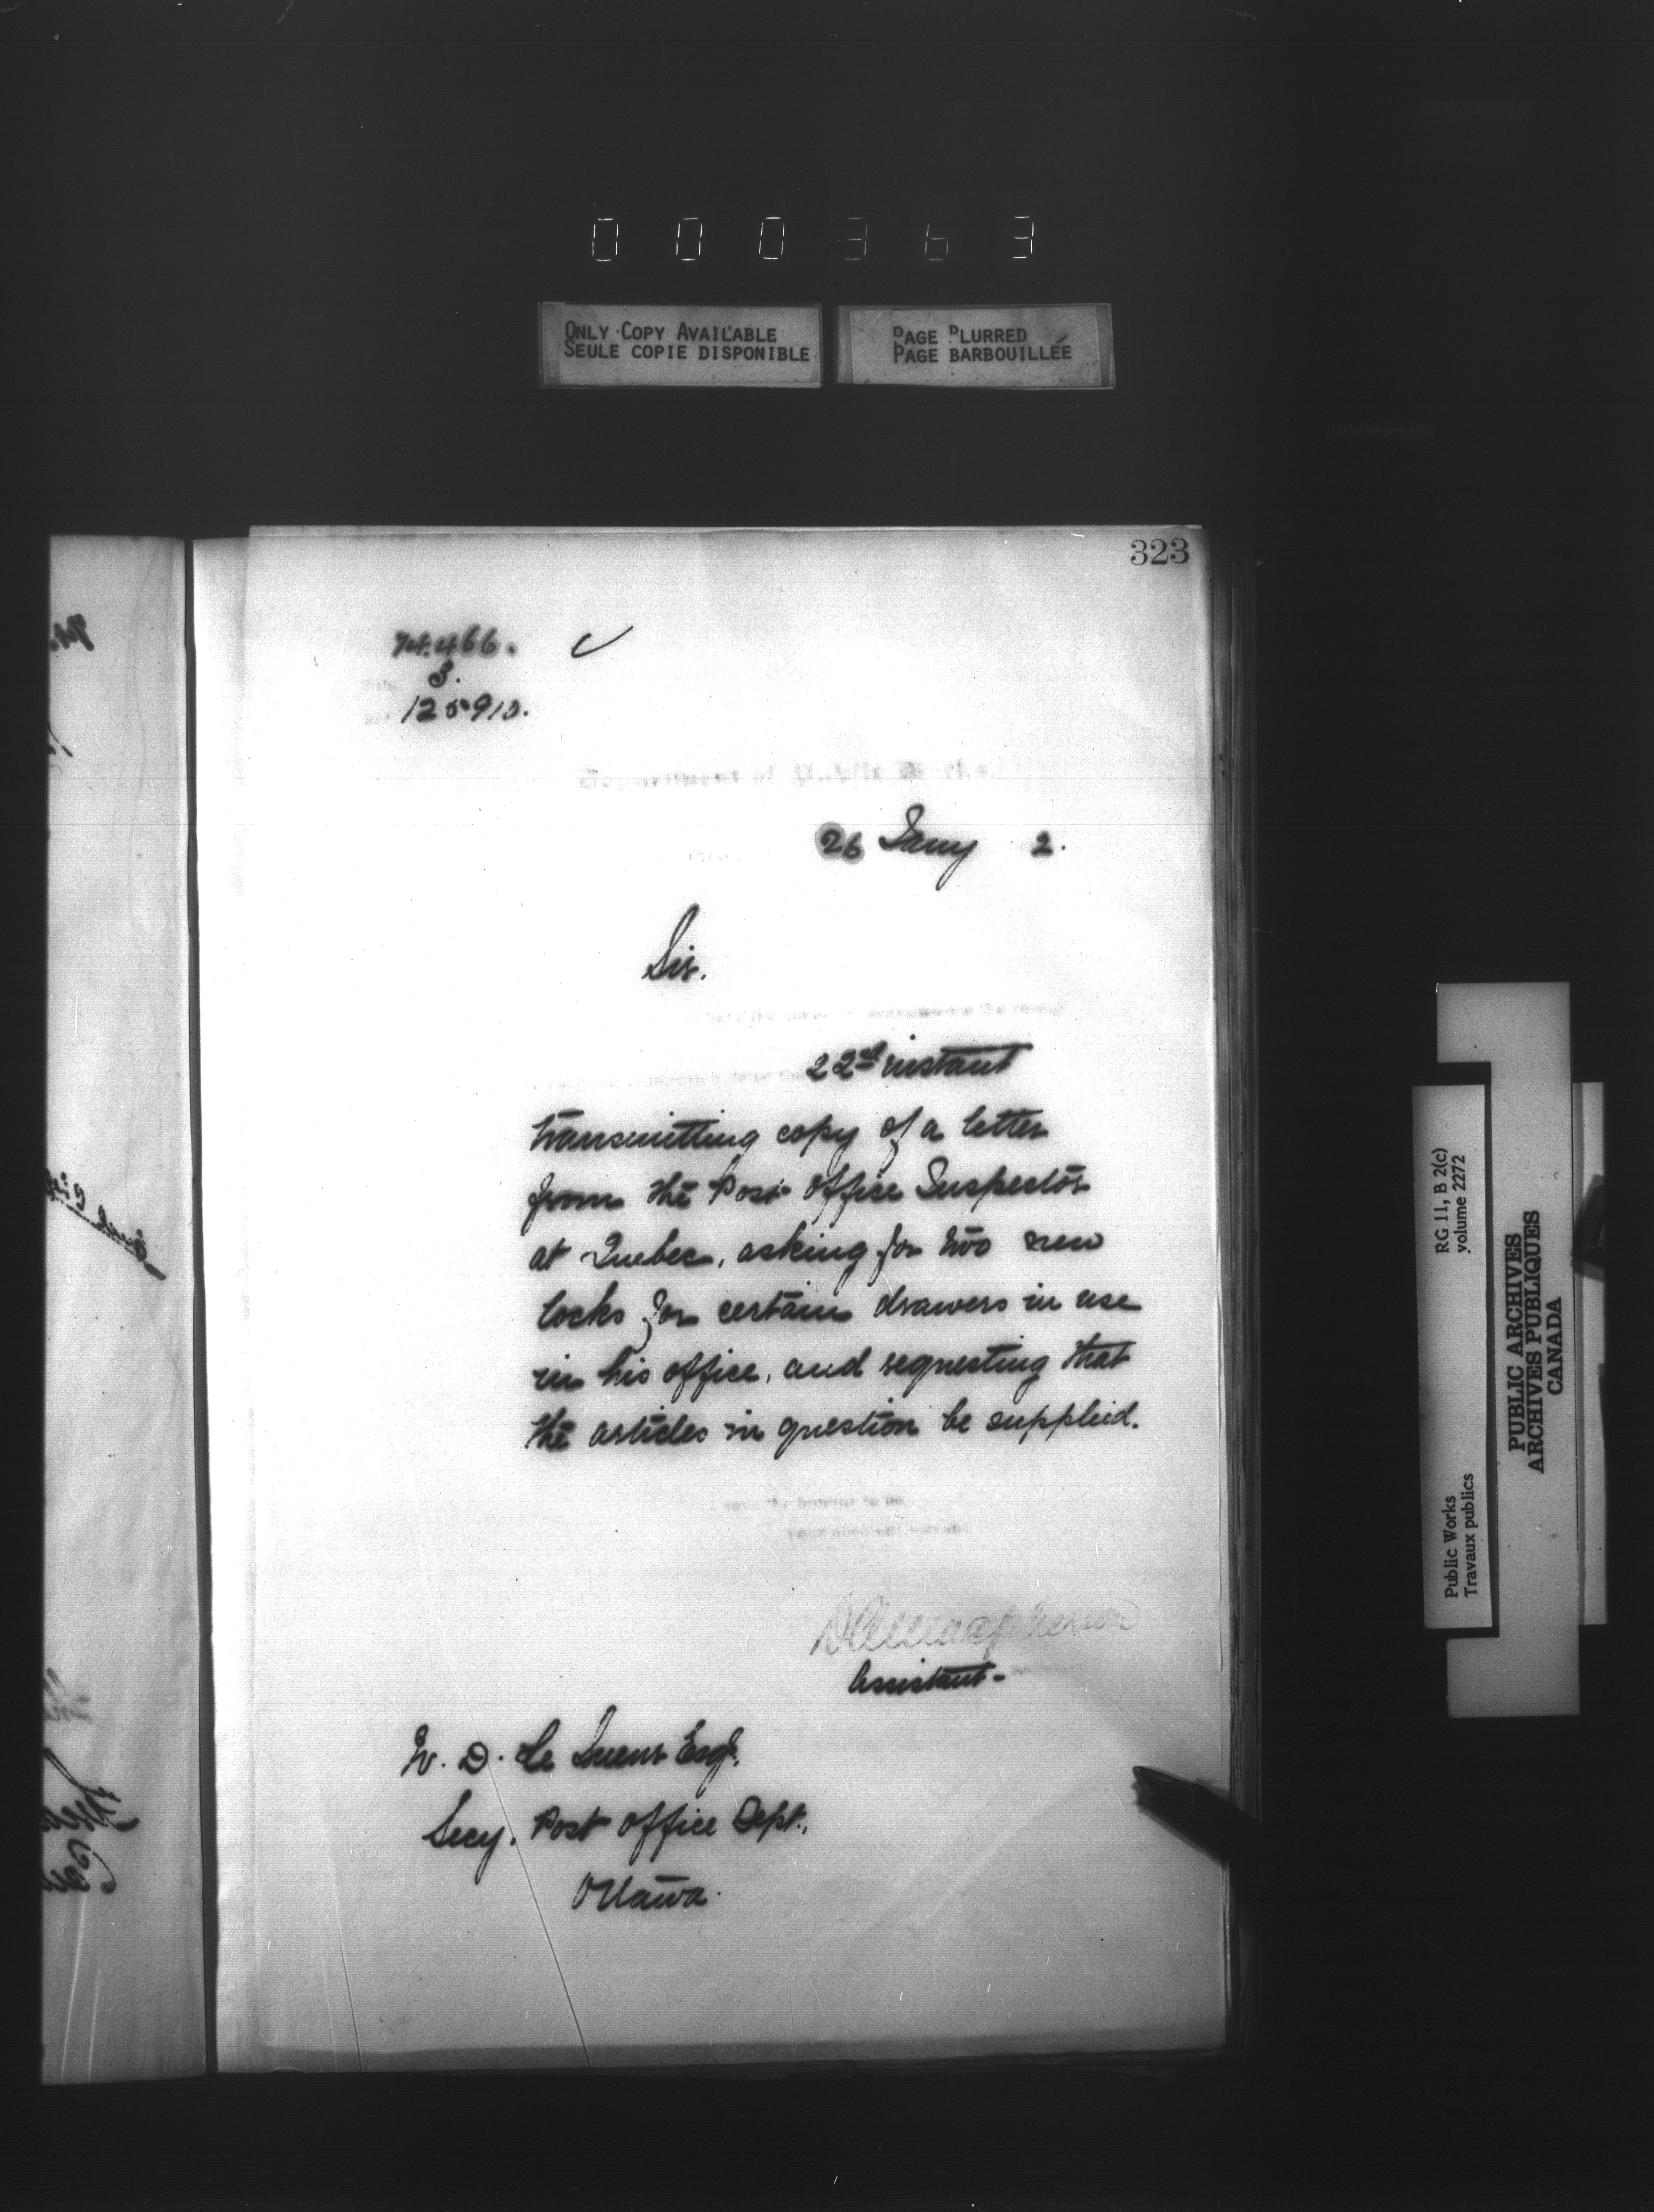 000363
ONLY COPY AVAILABLE
SEULE COPIE DISPONIBLE
PAGE BLURRED
PAGE BARBOUILLÉE
323
125910.
Department of Public Works
26 Jany 2.
Sir.
22nd instant
transmitting copy of a letter
from the Post Office Inspector
at Quebec, asking for two new
locks for certain drawers in use
in his office, and requesting that
the articles in question be supplied.
Assistant-
W. D. Le Sueur Esq.
Secy. Post Office Dept.,
Ottawa.
RG 11, B 2(c)
volume 2272
Public Works
Travaux publics
PUBLIC ARCHIVES
ARCHIVES PUBLIQUES
CANADA